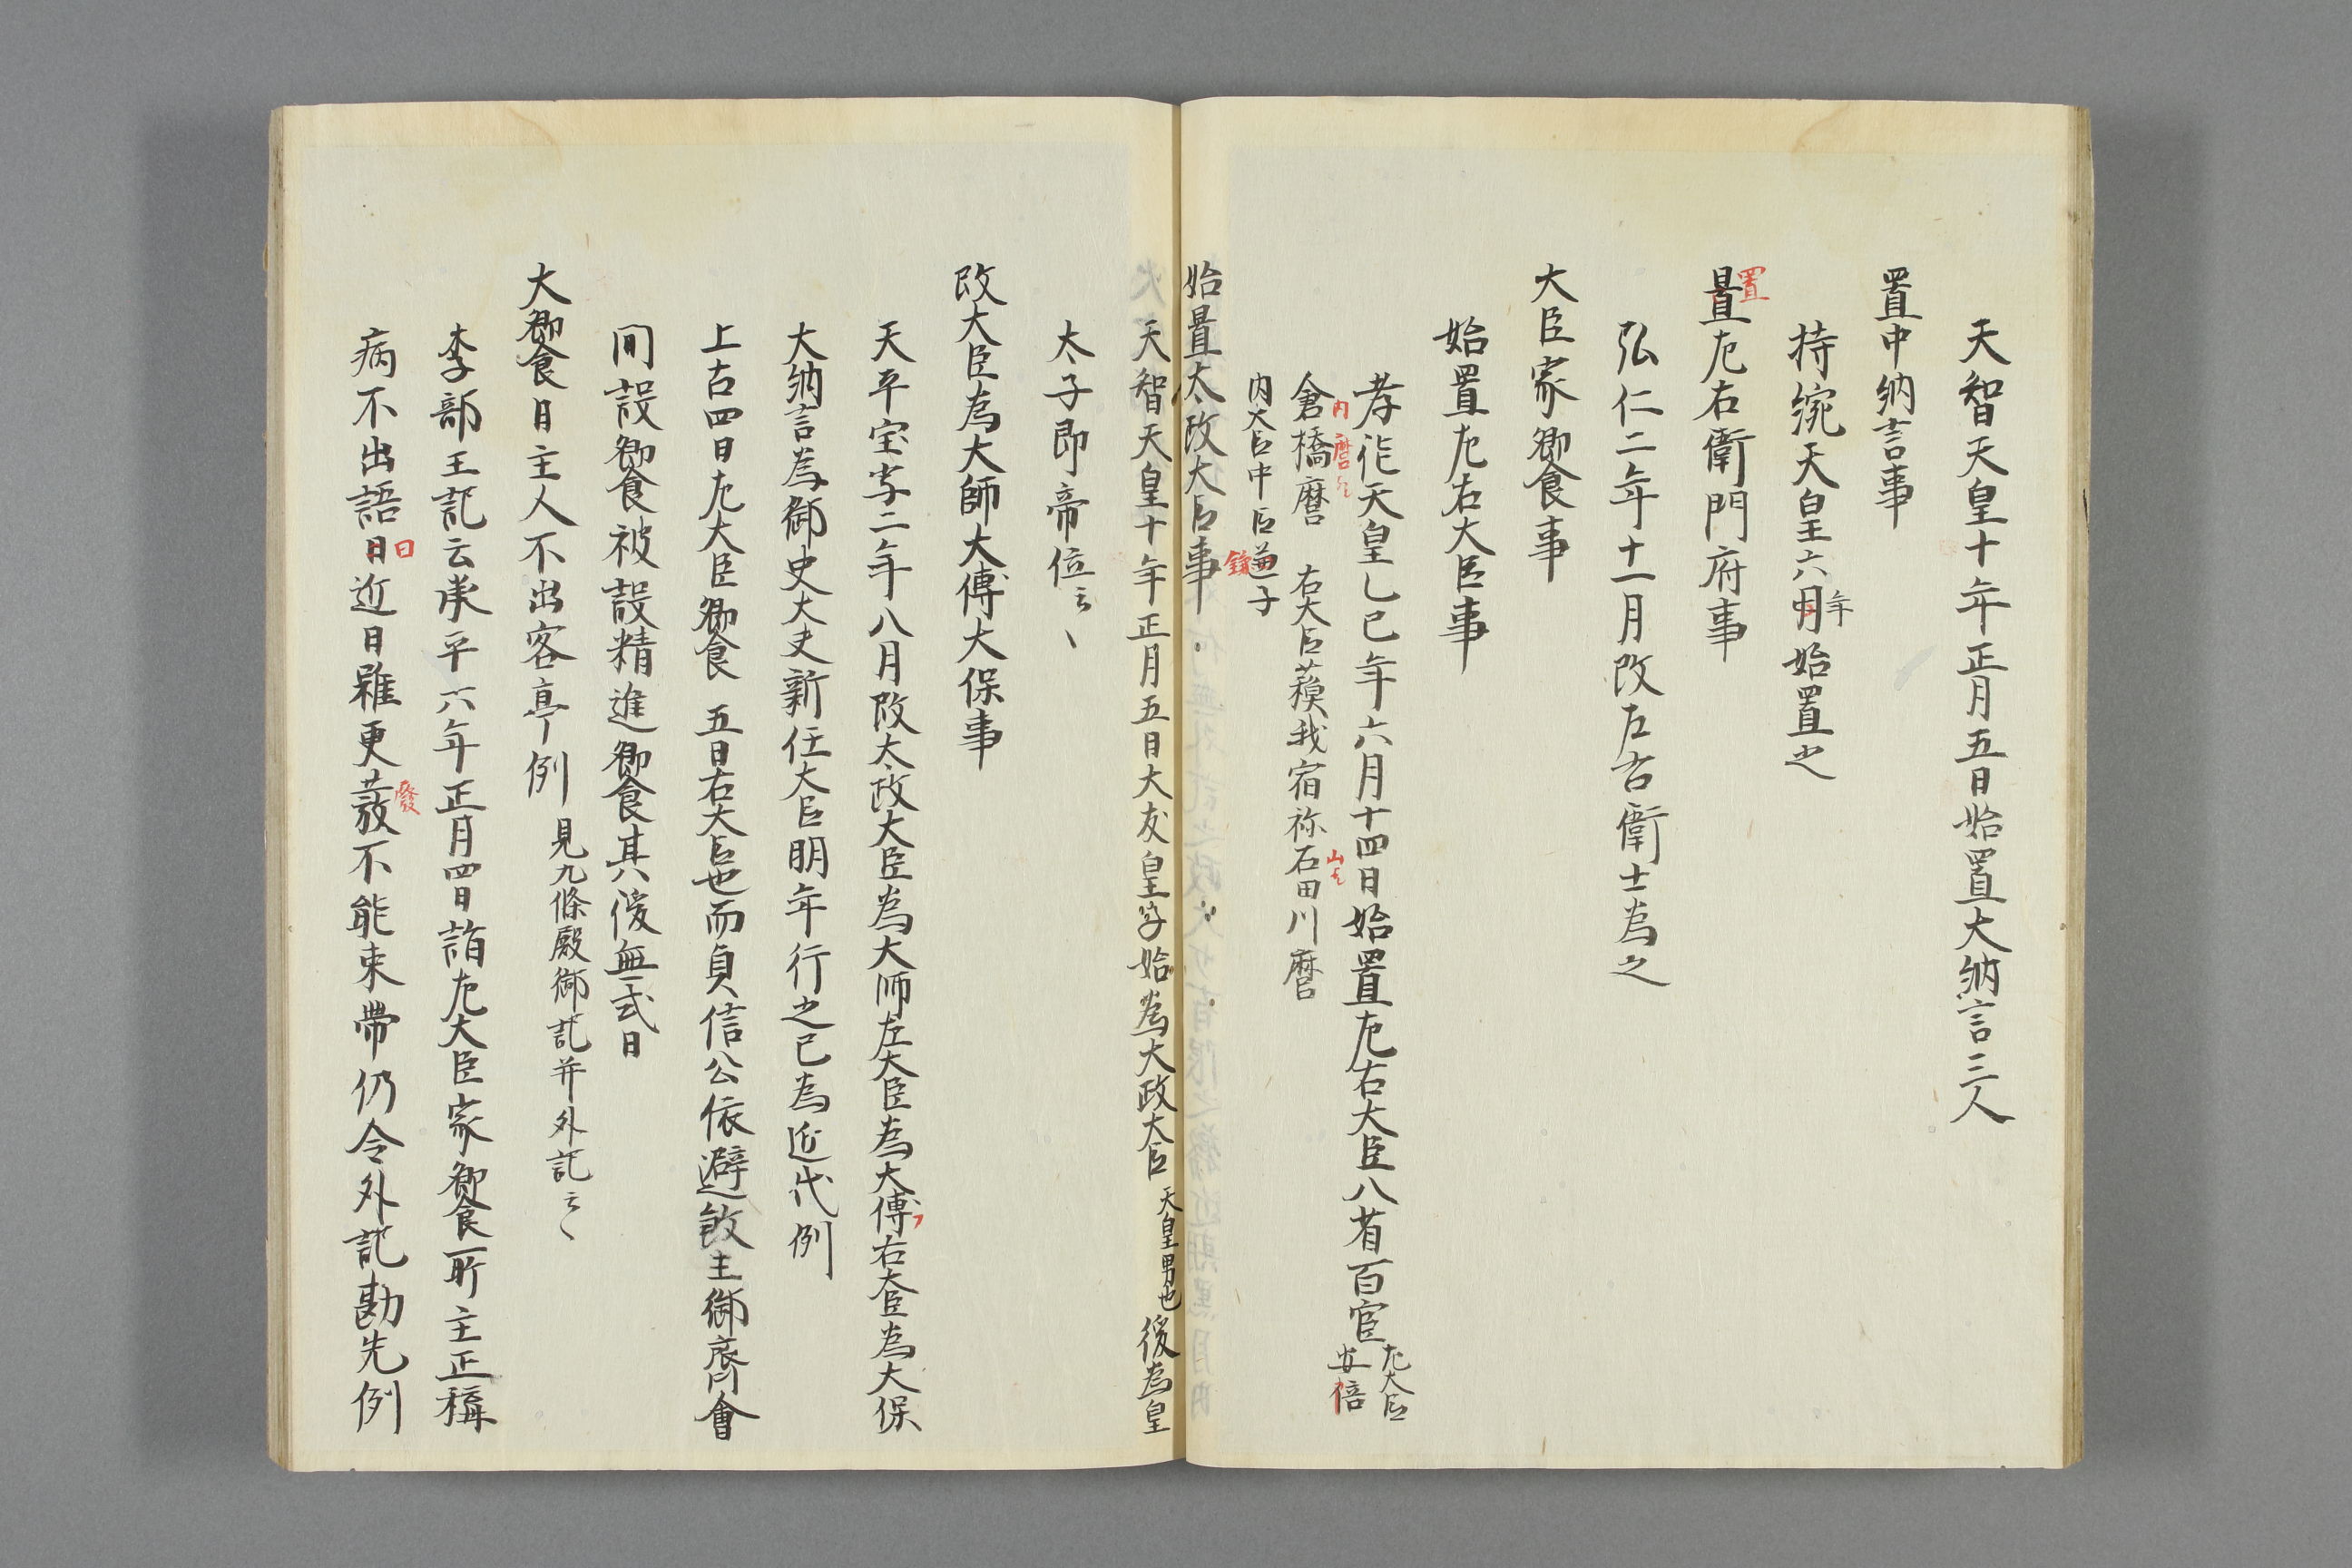 天智天皇十年正月五日始置大納言三人
置中納言事
持綂天皇六月始置之
年
置左右衛門府事
置
弘仁二年十一月改左右衛士為之
大臣家饗事
始置左右大臣事
孝徳天皇乙巳年六月十四日始置左右大臣八省百官
左大臣
安倍
倉橋麿 右大臣蘓我宿祢石田川麿
内
麿
山
内大臣中臣子
鎌
始置太政大臣事
天智天皇十年正月五日大友皇子始為大政大臣
天皇男也
後為皇
太子即帝位云々
改大臣為大師大傅大保事
天平宝字二年八月改太政大臣為大師左大臣為大傅右大臣為大保
大納言為御史大夫新任大臣明年行之已為近代例
上古四日左大臣饗 五日右大臣也而負信公依避故主御齋會
間設饗被設精進饗其後無式日
大饗日主人不出客亭例
見九條殿御記并外記云々
李部王記云承平六年正月四日詣左大臣家饗所主正稱
病不出語日近日雖更發不能束帶仍令外記勘先例
曰
廢